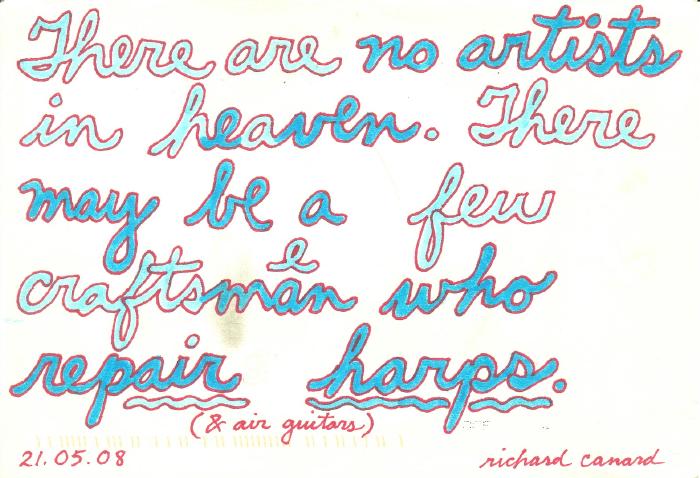 There are no artists
in heaven. There
may be a few
e
craftsman who
repair harps.
(& air guitars)
21.05.08 richard canard